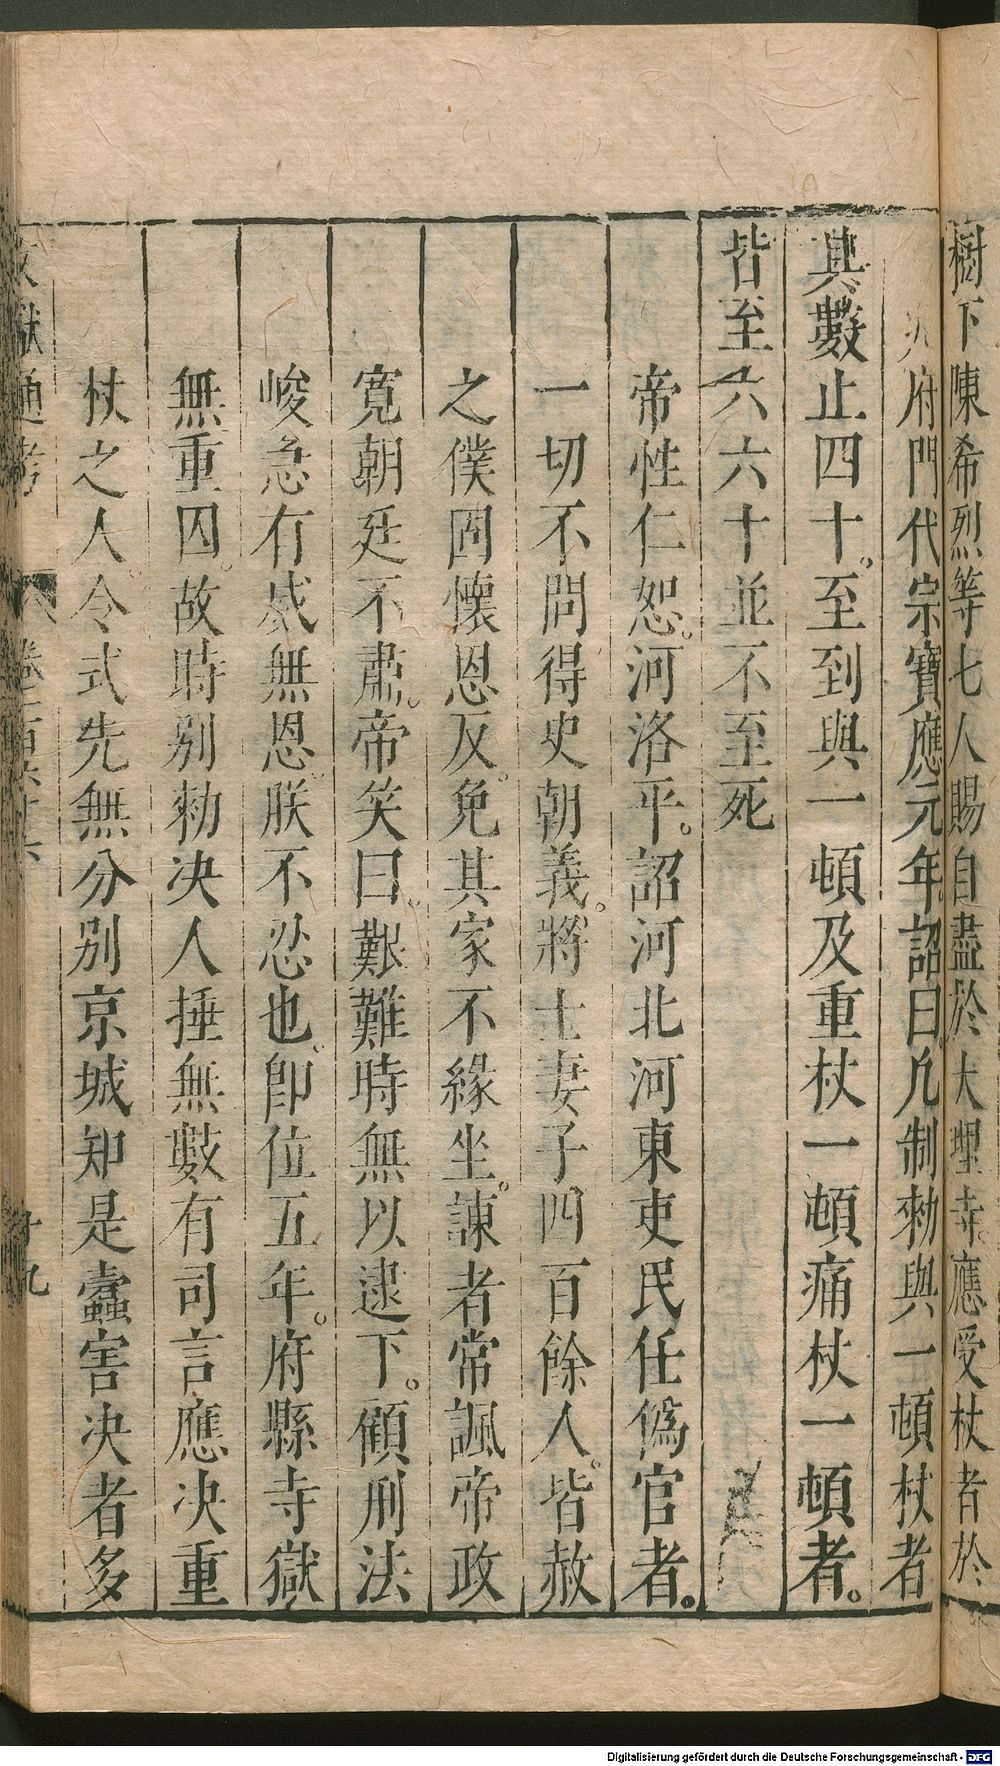 樹下陳希烈等七人賜自盡於大理寺應受杖者於
府門代宗寶應元年詔曰凡制勑與一頓杖者
其數止四十至到與一頓及重杖一頓痛杖一頓者
皆至六六十並不至死
帝性仁恕河洛平詔河北河東吏民任僞官者
一切不問得史朝義將士妻子四百餘人皆赦
之僕固懷恩反免其家不緣坐諫者常諷帝政
寬朝廷不肅帝笑曰艱難時無以逮下顧刑法
峻急有威無恩朕不忍也卽位五年府縣寺獄
無重囚故時別勑决人捶無數有司言應决重
杖之人令式先無分別京城知是蠹害决者多
文獻通考 卷一百六十六 十九
Digitalisierung gefördert durch die Deutsche Forschungsgemeinschaft - DFG